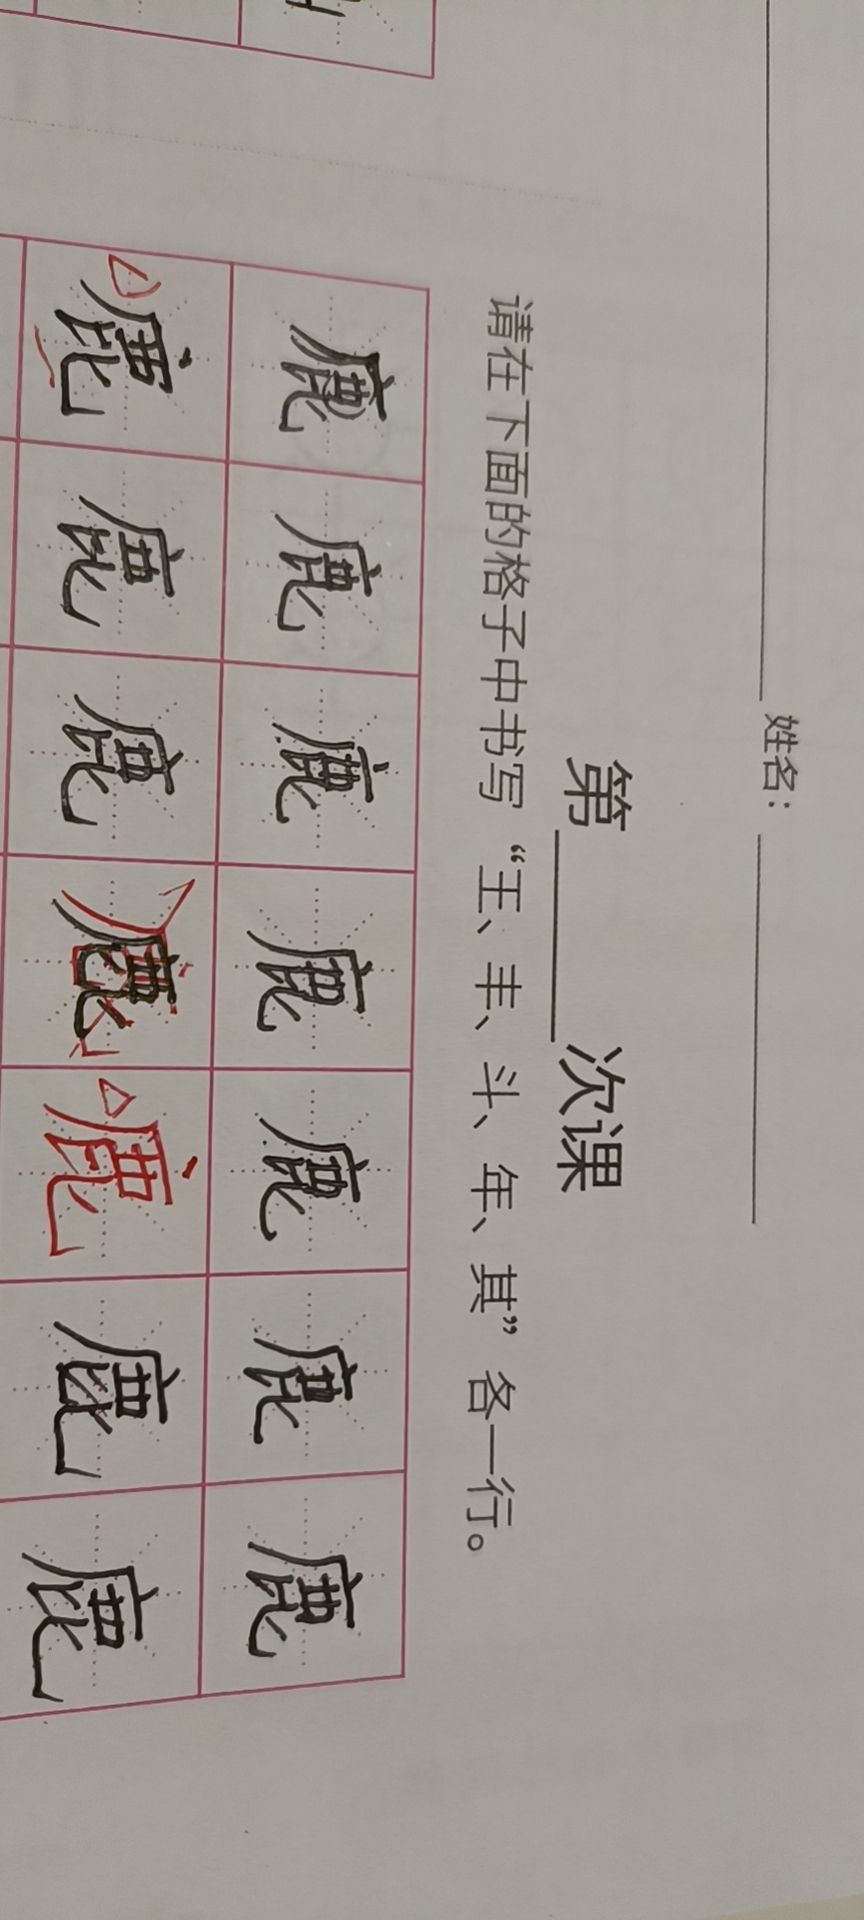 姓名：
第 次课
请在下面的格子中书写“王、丰、斗、年、其”各一行。
鹿 鹿 鹿 鹿 鹿 鹿 鹿
鹿 鹿 鹿 鹿 鹿 鹿 鹿